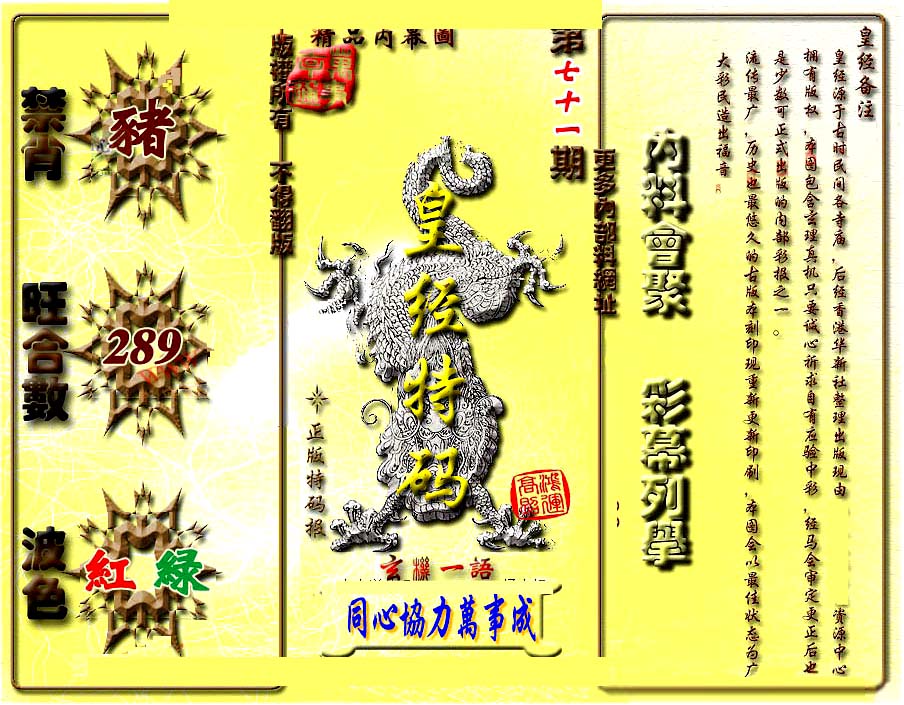 皇经备注
皇经源于古时民间各寺庙,后经香港华新社整理出版现由 资源中心
拥有版权,本图包含玄理真机只要诚心祈求自有应验中彩,经马会审定更正后也
是少数可正式出版的内部彩报之一。
流传最广,历史也最悠久的古版本刻印现重新更新印刷,本图会以最佳状态为广
大彩民造出福音
内料會聚
彩幕列舉
更多内部料網址
第七十一期
精品内幕圖
版權所有 不得翻版
皇经特码
正版特码报
鴻運
高照
玄機一語
同心協力萬事成
禁肖
豬
旺合數
289
波色
紅 綠